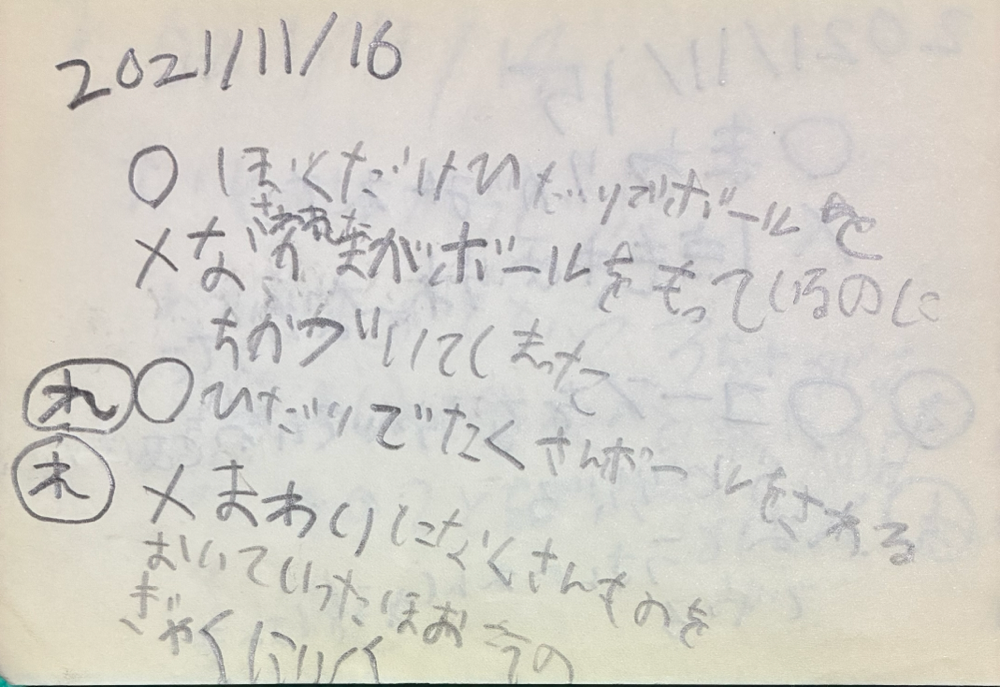 2021/11/16
○ ぼくだけひだりでボールを
さわれた
×なかまがボールをもっているのに
ちかづいてしまった
れ ○ ひだりでたくさんボールをさわる
れ × まわりにたくさんものを
おいていったほおこの
ぎゃくにいく